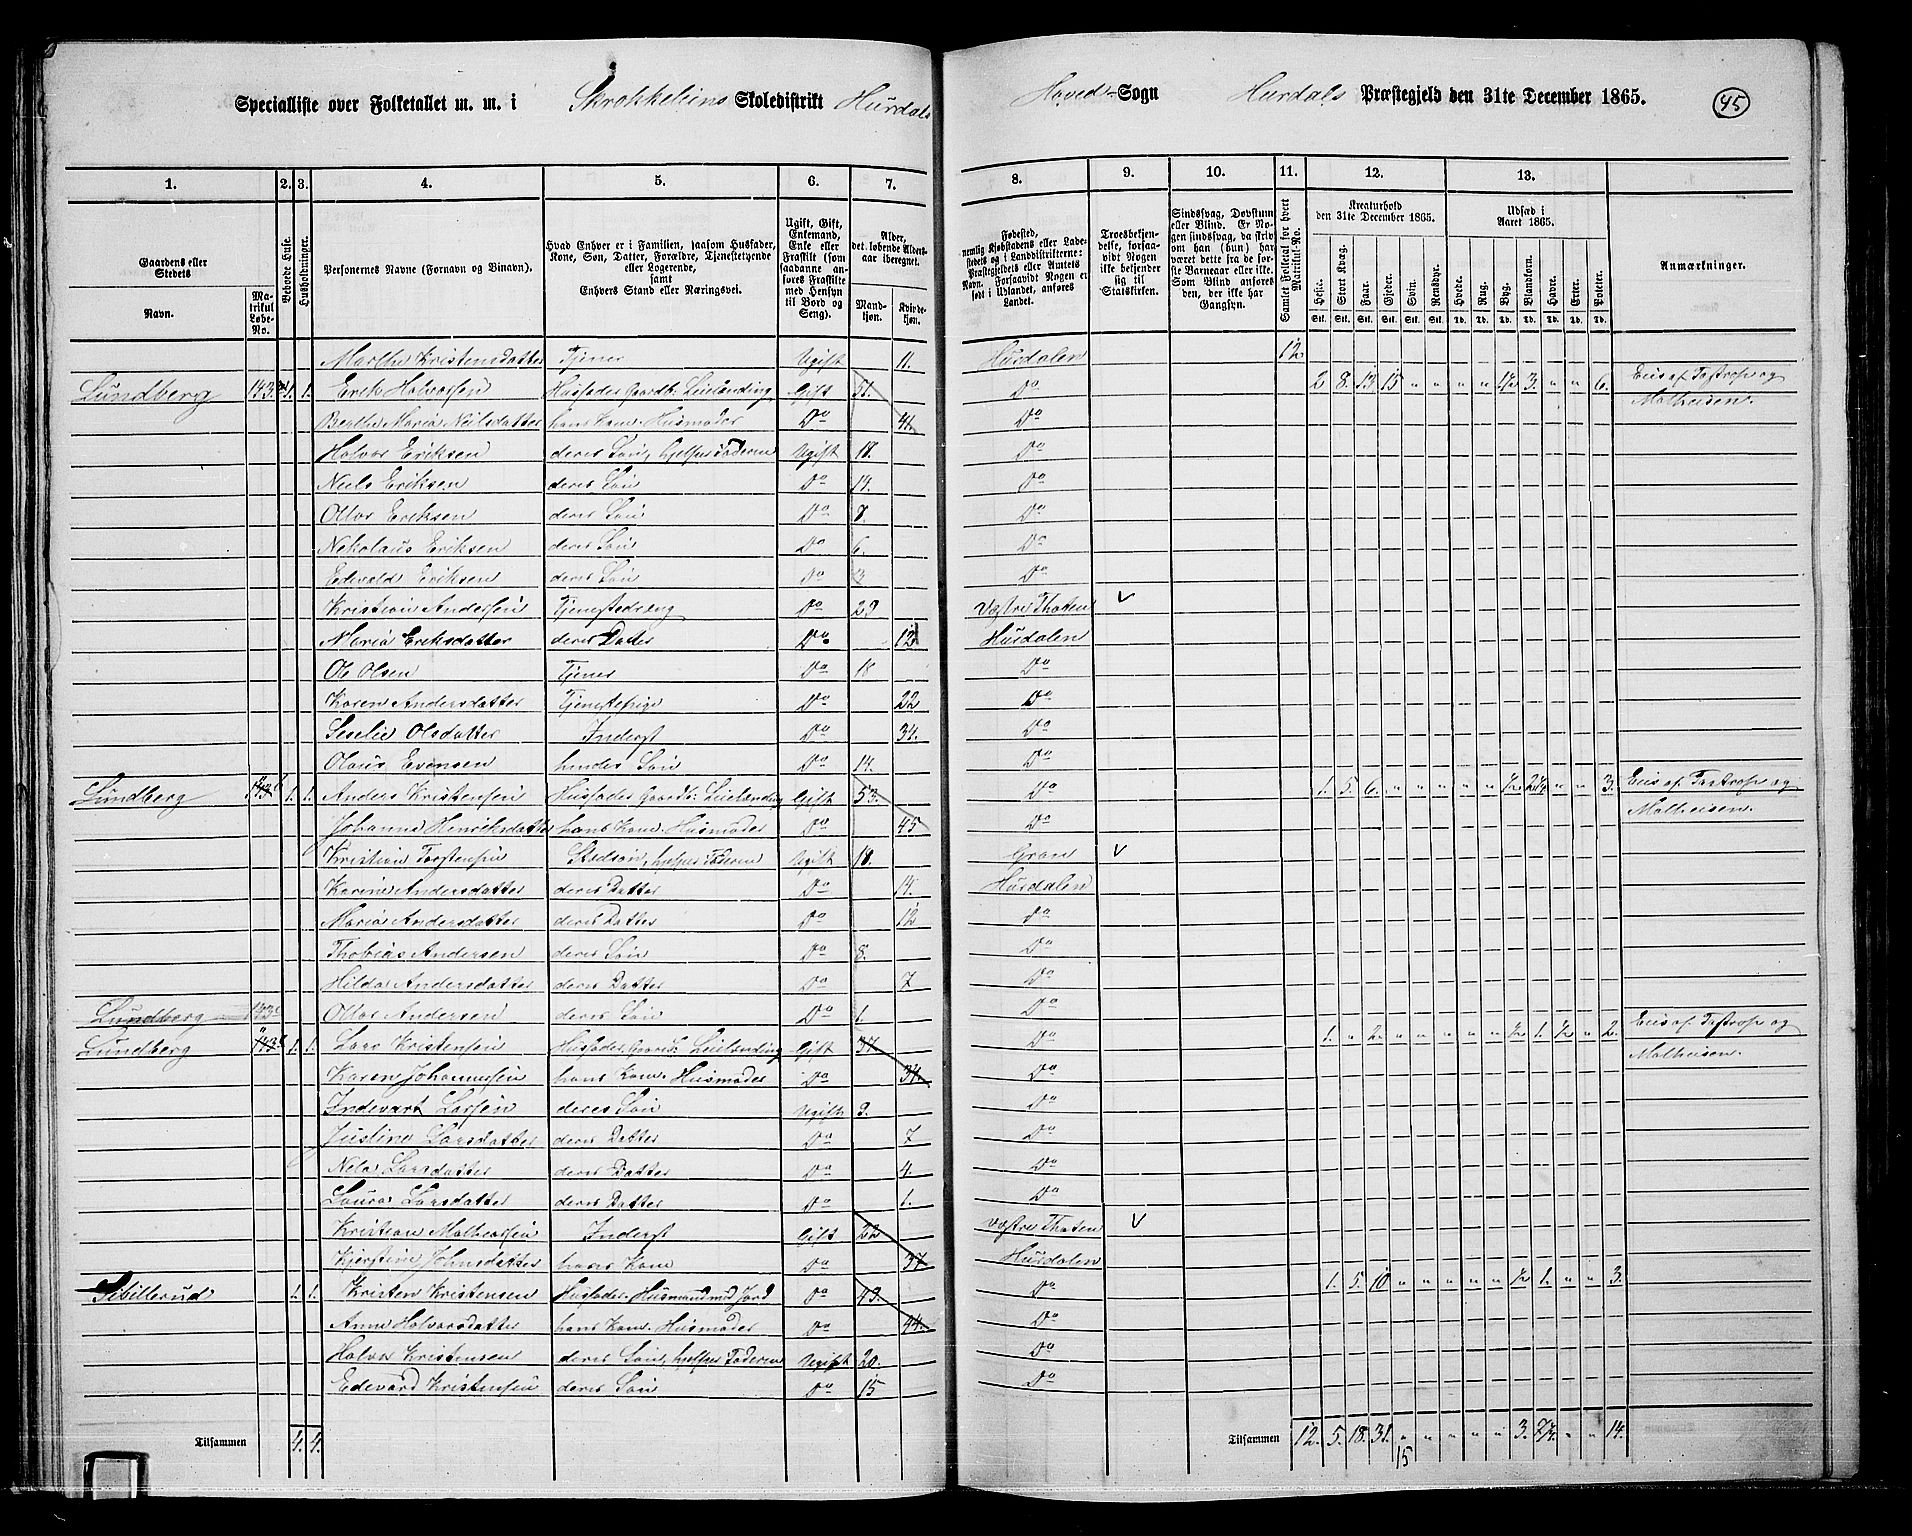 Specialliste over Folketallet m. m. i Skrokkeliens Skoledistrikt Hurdals
Hoved-Sogn Hurdals Præstegjeld den 31te December 1865.
45
1. 2. 3. 4. 5. 6. 7.
8. 9. 10. 11. 12. 13.
Gaardens eller Stedets
Navn.
Matrikul Løbe-No.
Beboede Huse.
Husholdninger.
Personernes Navne (Fornavn og Binavn).
Hvad Enhver er i Familien, saasom Husfader, Kone, Søn, Datter, Forældre, Tjenestetyende eller Logerende, samt Enhvers Stand eller Næringsvei.
Ugift, Gift, Enkemand, Enke eller Fraskilt (som saadanne anføres Fraskilte med Hensyn til Bord og Seng).
Alder, det løbende Aldersaar iberegnet.
Mandkjøn. Kvindekjøn.
Fødested,
Troesbekjendelse, forsaavidt Nogen ikke bekjender sig til Statskirken.
Sindssvag, Døvstum eller Blind.
Samlet Folketal for hvert Matrikul-No.
Kreaturhold den 31te December 1865.
Udsæd i Aaret 1865.
Anmærkninger.
Heste. Stort Kvæg. Faar. Gjeder. Sviin. Rensdyr. Hvede. Rug. Byg. Blandkorn. Havre. Erter. Poteter.
Stk. Stk. Stk. Stk. Stk. Stk. Td. Td. Td. Td. Td. Td. Td.
Marthe Kristensdatter Tjener Ugift 11. Hurdalen 12
Lundberg 143 1. 1. Erik Halvorsen Husfader Gaardb: Leilænding Gift 51. Do 2 8. 13 15 " " " " 1½ 3. " " 6. Eies af Tostrop og Matheisen.
Berthe Maria Nielsdatter hans Kone Husmoder Do Do
Halvor Eriksen deres Søn, hjelper Faderen Ugift 18. Do
Niels Eriksen deres Søn Do 14. Do
Ottos Eriksen deres Søn Do 8. Do
Nekolaus Eriksen deres Søn Do 6. Do
Edevald Eriksen deres Søn Do 3 Do
Kristian Andersen Tjenestedreng Do 29 Vestre Thoten
Maria Eriksdatter deres Datter Do 12. Hurdalen
Ole Olsen Tjener Do 18 Do
Karen Andersdatter Tjenestepige Do 22 Do
Seselie Olsdatter Inderst Do 34. Do
Olaus Evensen hendes Søn Do 14. Do
Lundberg 143 1. 1. Anders Kristensen Husfader Gaardb: Leilænding Gift 53. Do 1. 5. 6. " " " " " ½ 2¼ " " 3. Eies af Tostrop og Matheisen.
Johanne Henriksdatter hans Kone Husmoder Do 45 Do
Kristian Torstensen Stedsøn, hjelper Faderen Ugift 18. Gran
Karine Andersdatter deres Datter Do 14. Hurdalen
Maria Andersdatter deres Datter Do 12 Do
Thobias Andersen deres Søn Do 8. Do
Hilda Andersdatter deres Datter Do 7 Do
Lundberg 143 Ottos Andersen deres Søn Do 1. Do
Lundberg 143 1. 1. Lars Kristensen Husfader, Gaardb: Leilænding Gift 37. Do 1. " 2. " " " " " ½ 1. ½ " 2. Eies af Tostrop og Matheisen.
Karen Johannesen hans Kone Husmoder Do 34. Do
Indevart Larsen deres Søn Ugift 9. Do
Justine Larsdatter deres Datter Do 7 Do
Nela Larsdatter deres Datter Do 4. Do
Laura Larsdatter deres Datter Do 1. Do
Kristian Inderst Gift 32 Vestre Thoten
Kjerstine Johnsdatter hans Kone Do 37 Hurdalen
Sibillerud 1. 1. Kristen Kristensen Husfader Husmand med Jord Do 43. Do 1. 5. 10 " " " " " ½ 1. " " 3.
Anne Halvorsdatter hans Kone Husmoder Do 44. Do
Halvor Kristensen deres Søn, hjelper Faderen Ugift 20. Do
Edevard Kristensen deres Søn Do 15 Do
Tilsammen 4. 4.
Tilsammen 12. 5. 18. 31. " " " " 3. 7¼. " " 14.
15